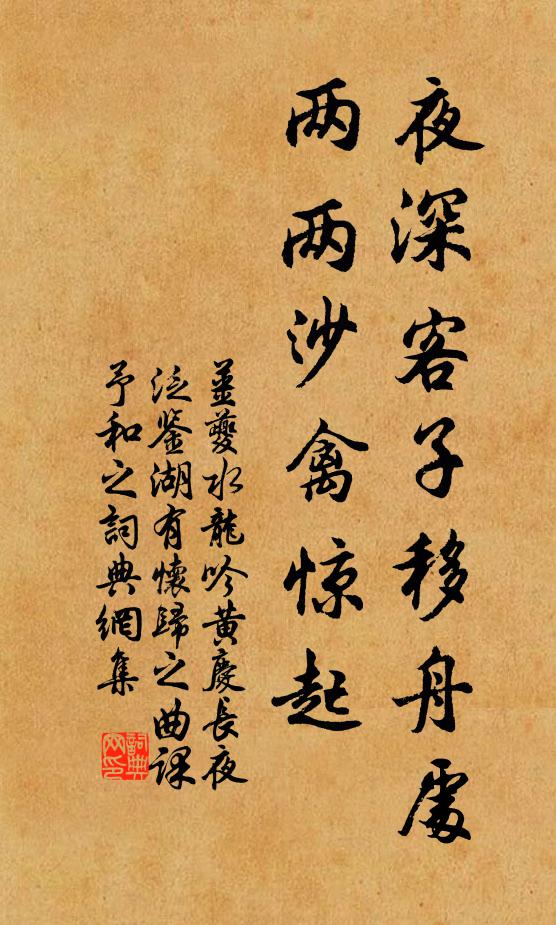 夜深客子移舟處
两两沙禽惊起
姜夔水龍吟黄慶長夜
泛鉴湖有懷歸之曲課
予和之詞典網集
詞典网印